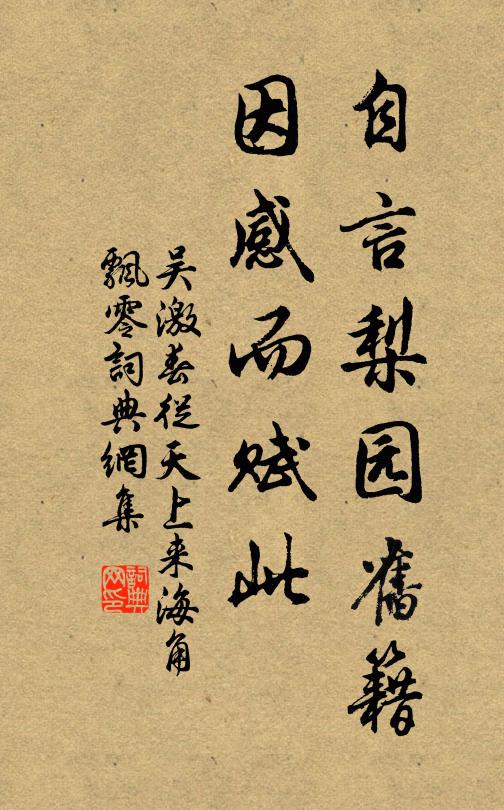 自言梨园舊籍
因感而赋此
吴激春從天上来海角
飄零詞典網集
詞典
网印